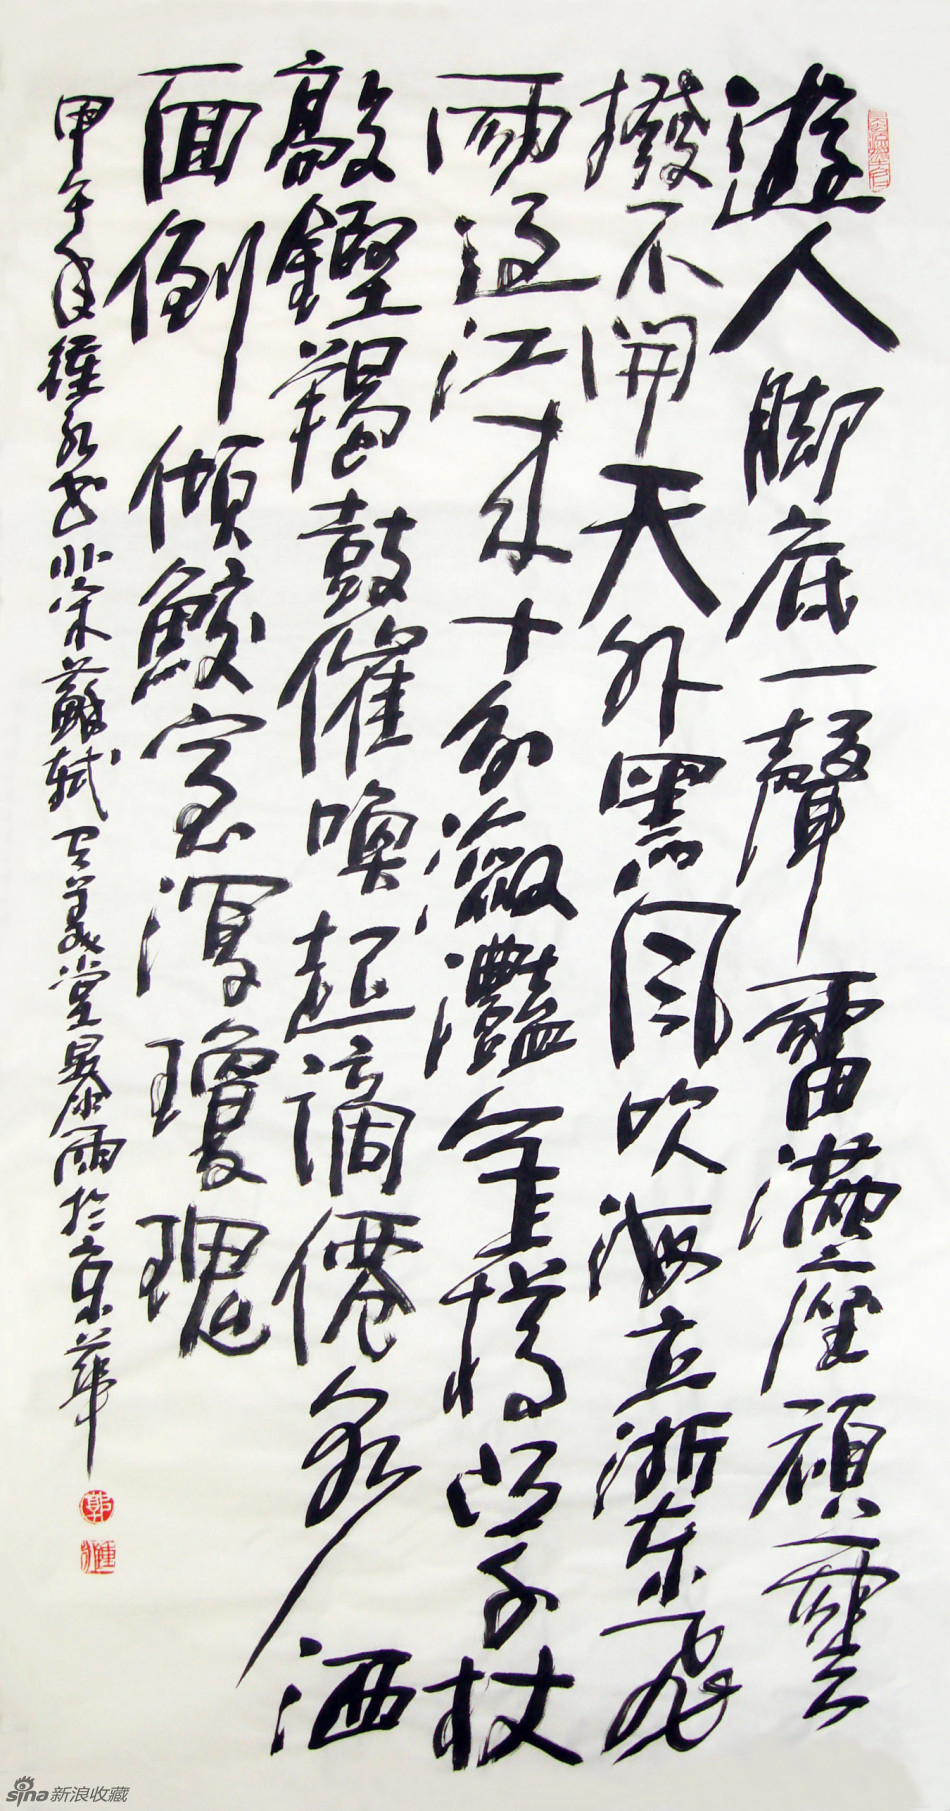 遊人脚底一聲雷滿座頑雲
撥不開天外黑風吹海立浙東飛
雨過江來十分瀲灩金樽凸千杖
敲鏗羯鼓催喚起謫僊泉洒
面倒傾鮫室瀉瓊瑰
甲午年書北宋蘇軾有美堂暴雨於京華
郭
sina新浪收藏